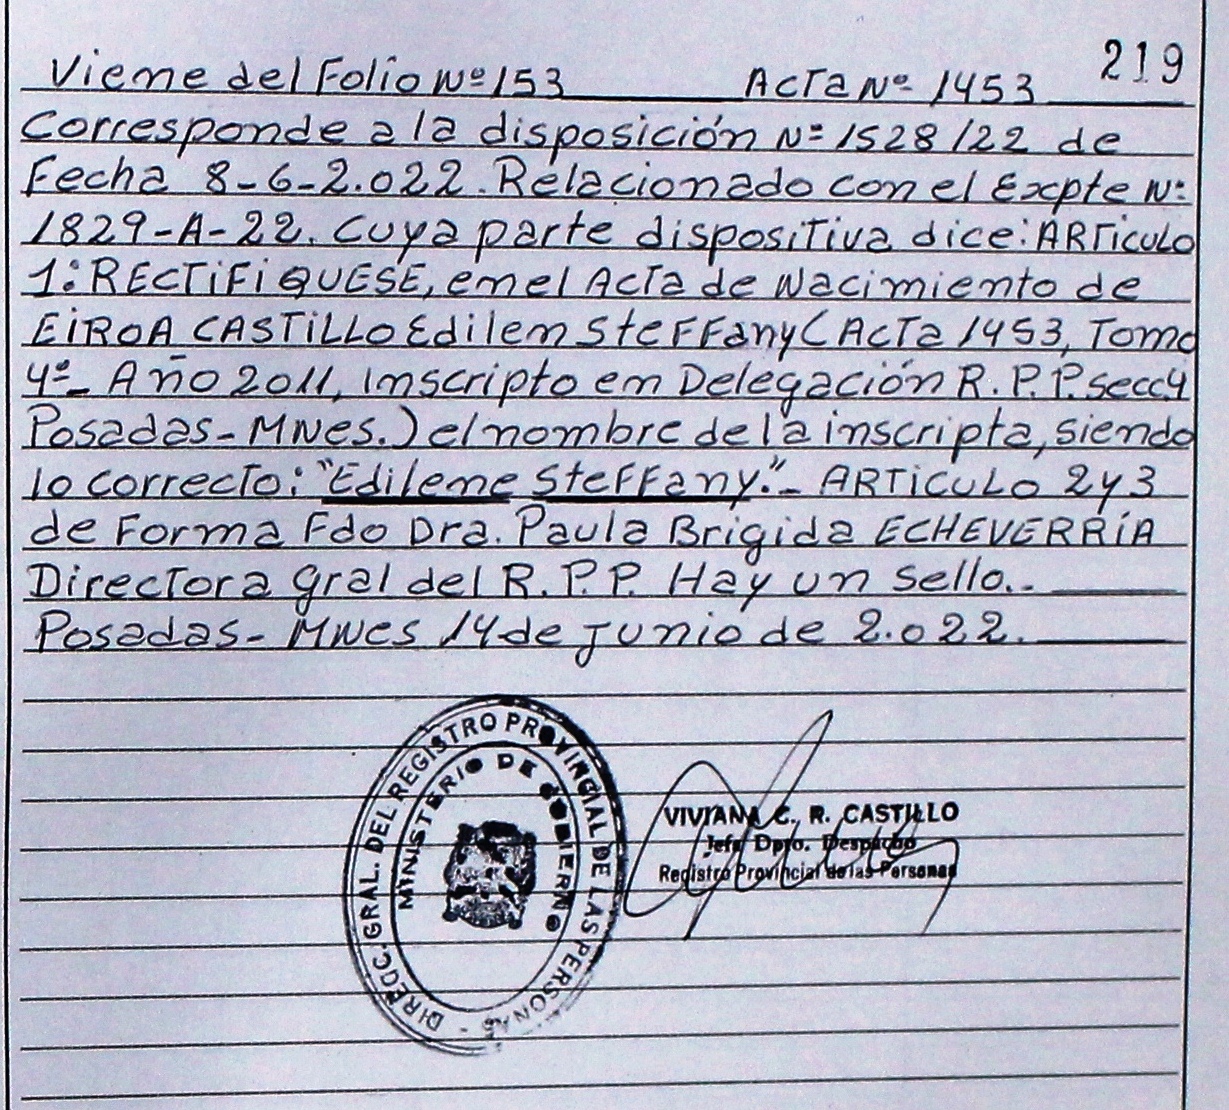 219
Viene del Folio Nº 153 Acta Nº 1453
Corresponde a la disposición Nº 1528/22 de
Fecha 8-6-2.022. Relacionado con el Expte Nº
1829-A-22. Cuya parte dispositiva dice: ARTICULO
1: RECTIFIQUESE, en el Acta de Nacimiento de
EIROA CASTILLO Edilem Steffany (Acta 1453, Tomo
4º- Año 2011, inscripto en Delegación R.P.P. secc 4
Posadas-MNes.) el nombre de la inscripta, siendo
lo correcto: "Edileme Steffany".- ARTICULO 2 y 3
de Forma Fdo Dra. Paula Brigida ECHEVERRÍA
Directora Gral del R.P.P. Hay un sello.-
Posadas- MNes 14 de junio de 2.022.
DIRECC. GRAL. DEL REGISTRO PROVINCIAL DE LAS PERSONAS -
MINISTERIO DE GOBIERNO
VIVIANA C. R. CASTILLO
Jefa Dpto. Despacho
Registro Provincial de las Personas